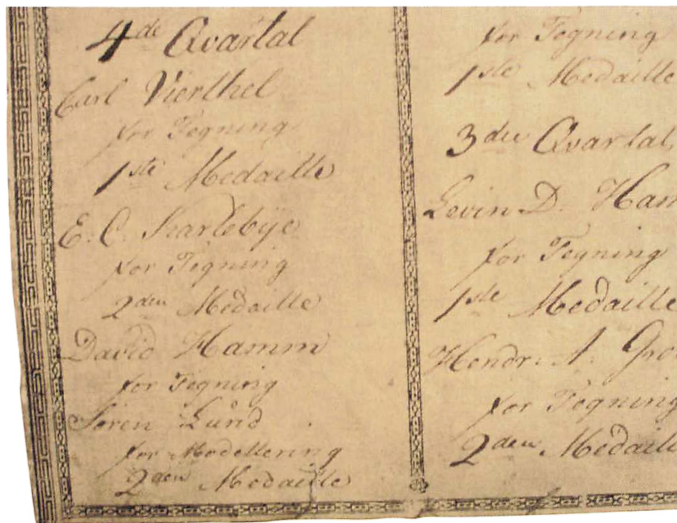 4de Qvartal
Carl Vierthel
for Tegning
1ste Medaille
E. C. Karlebÿe
for Tegning
2den Medaille
David Hamm
for Tegning
Søren Lund
for Modellering
2den Medaille
for Tegning
1ste Medaille
3die Qvartal,
Levin D. Ham
for Tegning
1ste Medaille
Hendr. A. Gro
for Tegning
2den Medaille